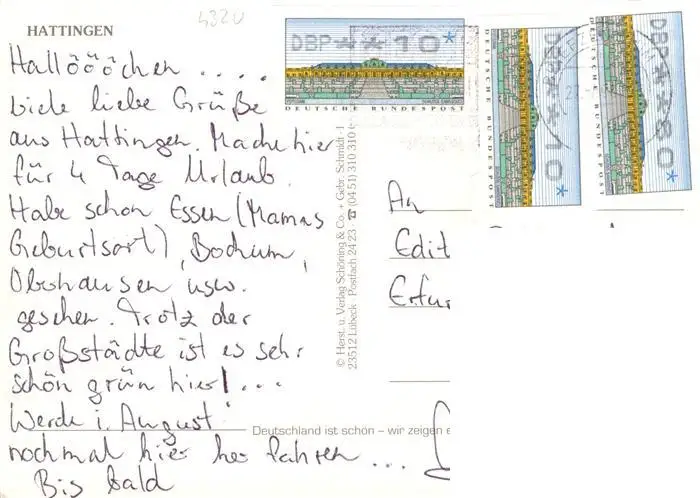 4320
HATTINGEN
Hallööö̈chen . . . .
viele liebe Grüße
aus Hattingen. Mache hier
für 4 Tage Urlaub.
Habe schon Essen (Mamas
Geburtsort), Bochum,
Oberhausen usw.
gesehen. Trotz der
Großstädte ist es sehr
schön grün hier! . . .
Werde i. August
nochmal hier her fahren . . .
Bis bald
Deutschland ist schön – wir zeigen e
© Herst. u. Verlag Schöning & Co. + Gebr. Schmidt · 1
23512 Lübeck · Postfach 24 23 · ☎ (04 51) 310 310
DBP * * 10 *
DEUTSCHE BUNDESPOST
DBP * * 10 *
DEUTSCHE BUNDESPOST
DBP * * 80 *
DEUTSCHE BUNDESPOST
An
Edit
Erfur